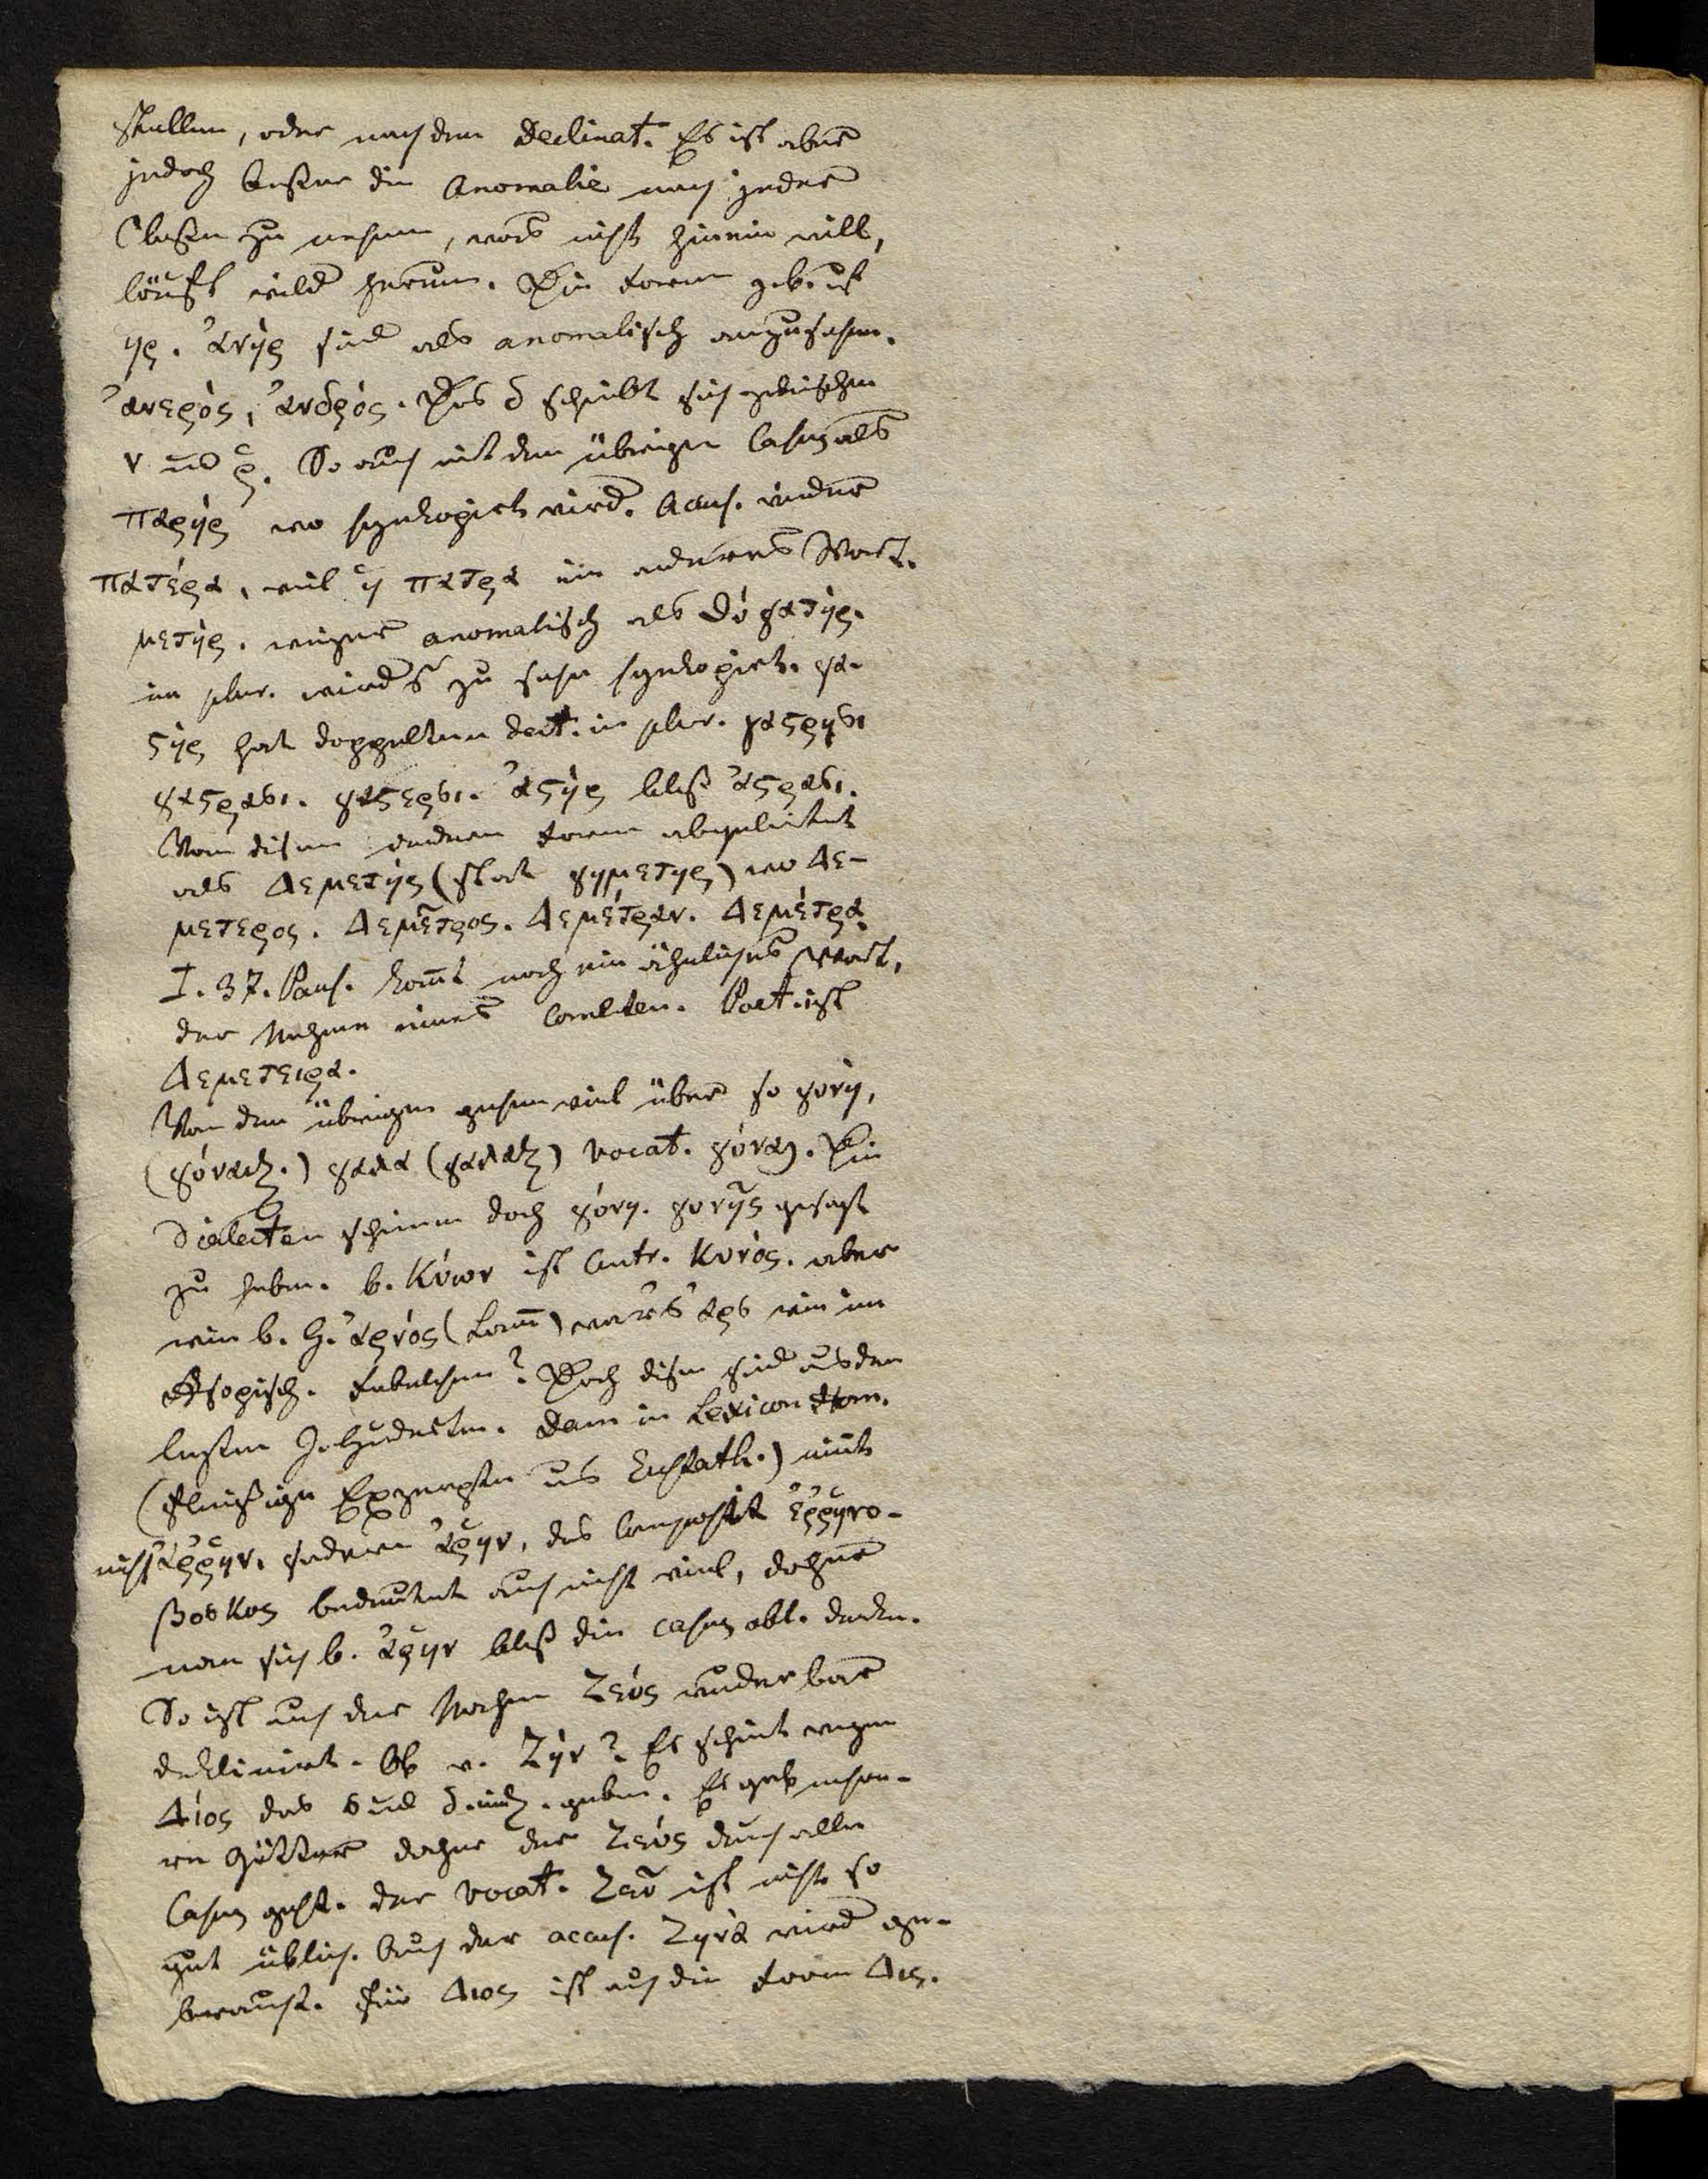 stellen, oder nach den Declinat. Es ist aber
jedoch besser die Anomalie nach jeder
Classe zu nehmen, was nicht hinein will,
läuft wild herum. Die Form geb. auf
ηρ. ἀνὴρ sind als anomalisch anzusehen.
ἀνερός, ἀνδρός. Das δ schiebt sich zwischen
ν und ρ. So auch mit den übrigen Casus als
πατὴρ wo synkopirt wird. Accus. wieder
πατέρα, weil ἡ πατρα ein anderes Wort.
μετὴρ. weniger anomalisch als θύγατὴρ.
im plur. wirds zu sehr synkopirt. γα-
ϛὴρ hat doppelten dat. in plur. γαϛρησι
γαϛρασι. γαϛερσι. ἀϛὴρ bloß ἀϛρασι.
Von diesen andern Form abgeleitet
als Δεμετὴρ (statt γημετηρ) wo Δε-
μετερος. Δεμῆτρος. Δεμέτραν. Δεμέτρα.
I. 37. Paus. kommt noch ein ähnliches Wort,
der Nahme eines Poet. ist
Δεμετειρα.
Von den übrigen gehen viel über so γυνὴ,
(γύναιξ.) γαλα (γαλαξ) vocat. γύναι. Die
Dialecten scheinen doch γύνη. γυνῆς gehabt
zu haben. b. Κύων ist Contr. Κυνὸς. aber
wie b. G. ἀρνός (Lamm) wars ἀρς wie im
Aesopisch. Fabelchen? Doch diese sind aus den
Denn in Lexicon Hom.
(fleißige Exzerpte aus Eustath.) nicht
nicht ἀῤῥην, sondern ἀρην, das Composit ἐῤῥηνο-
βοσκος bedeutet auch nicht viel, daher
man sich b. ἀρην bloß die casus obl. denken.
So ist auch der Nahme Ζεύς wunderbar
deklinirt. Ob v. Ζὴν? Es scheint wegen
Δίος das
Götter daher der Ζεύς durch alle
Casus geht. der vocat. Ζεῦ ist nicht so
gut üblich. Auch der accus. Ζηνὰ wird ge-
braucht. Für Διος ist auch die Form Δις.